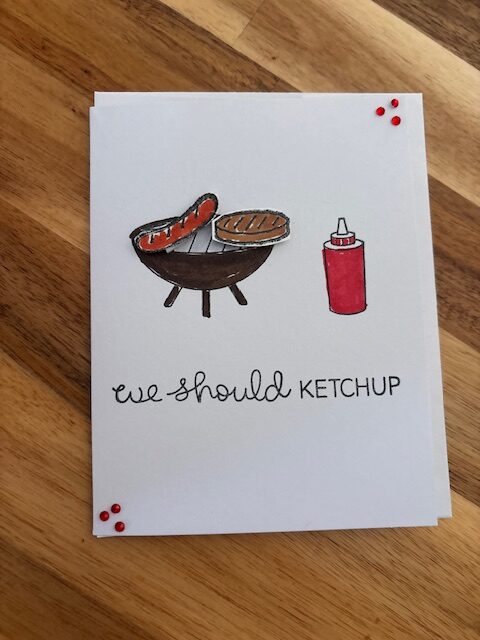 we should KETCHUP